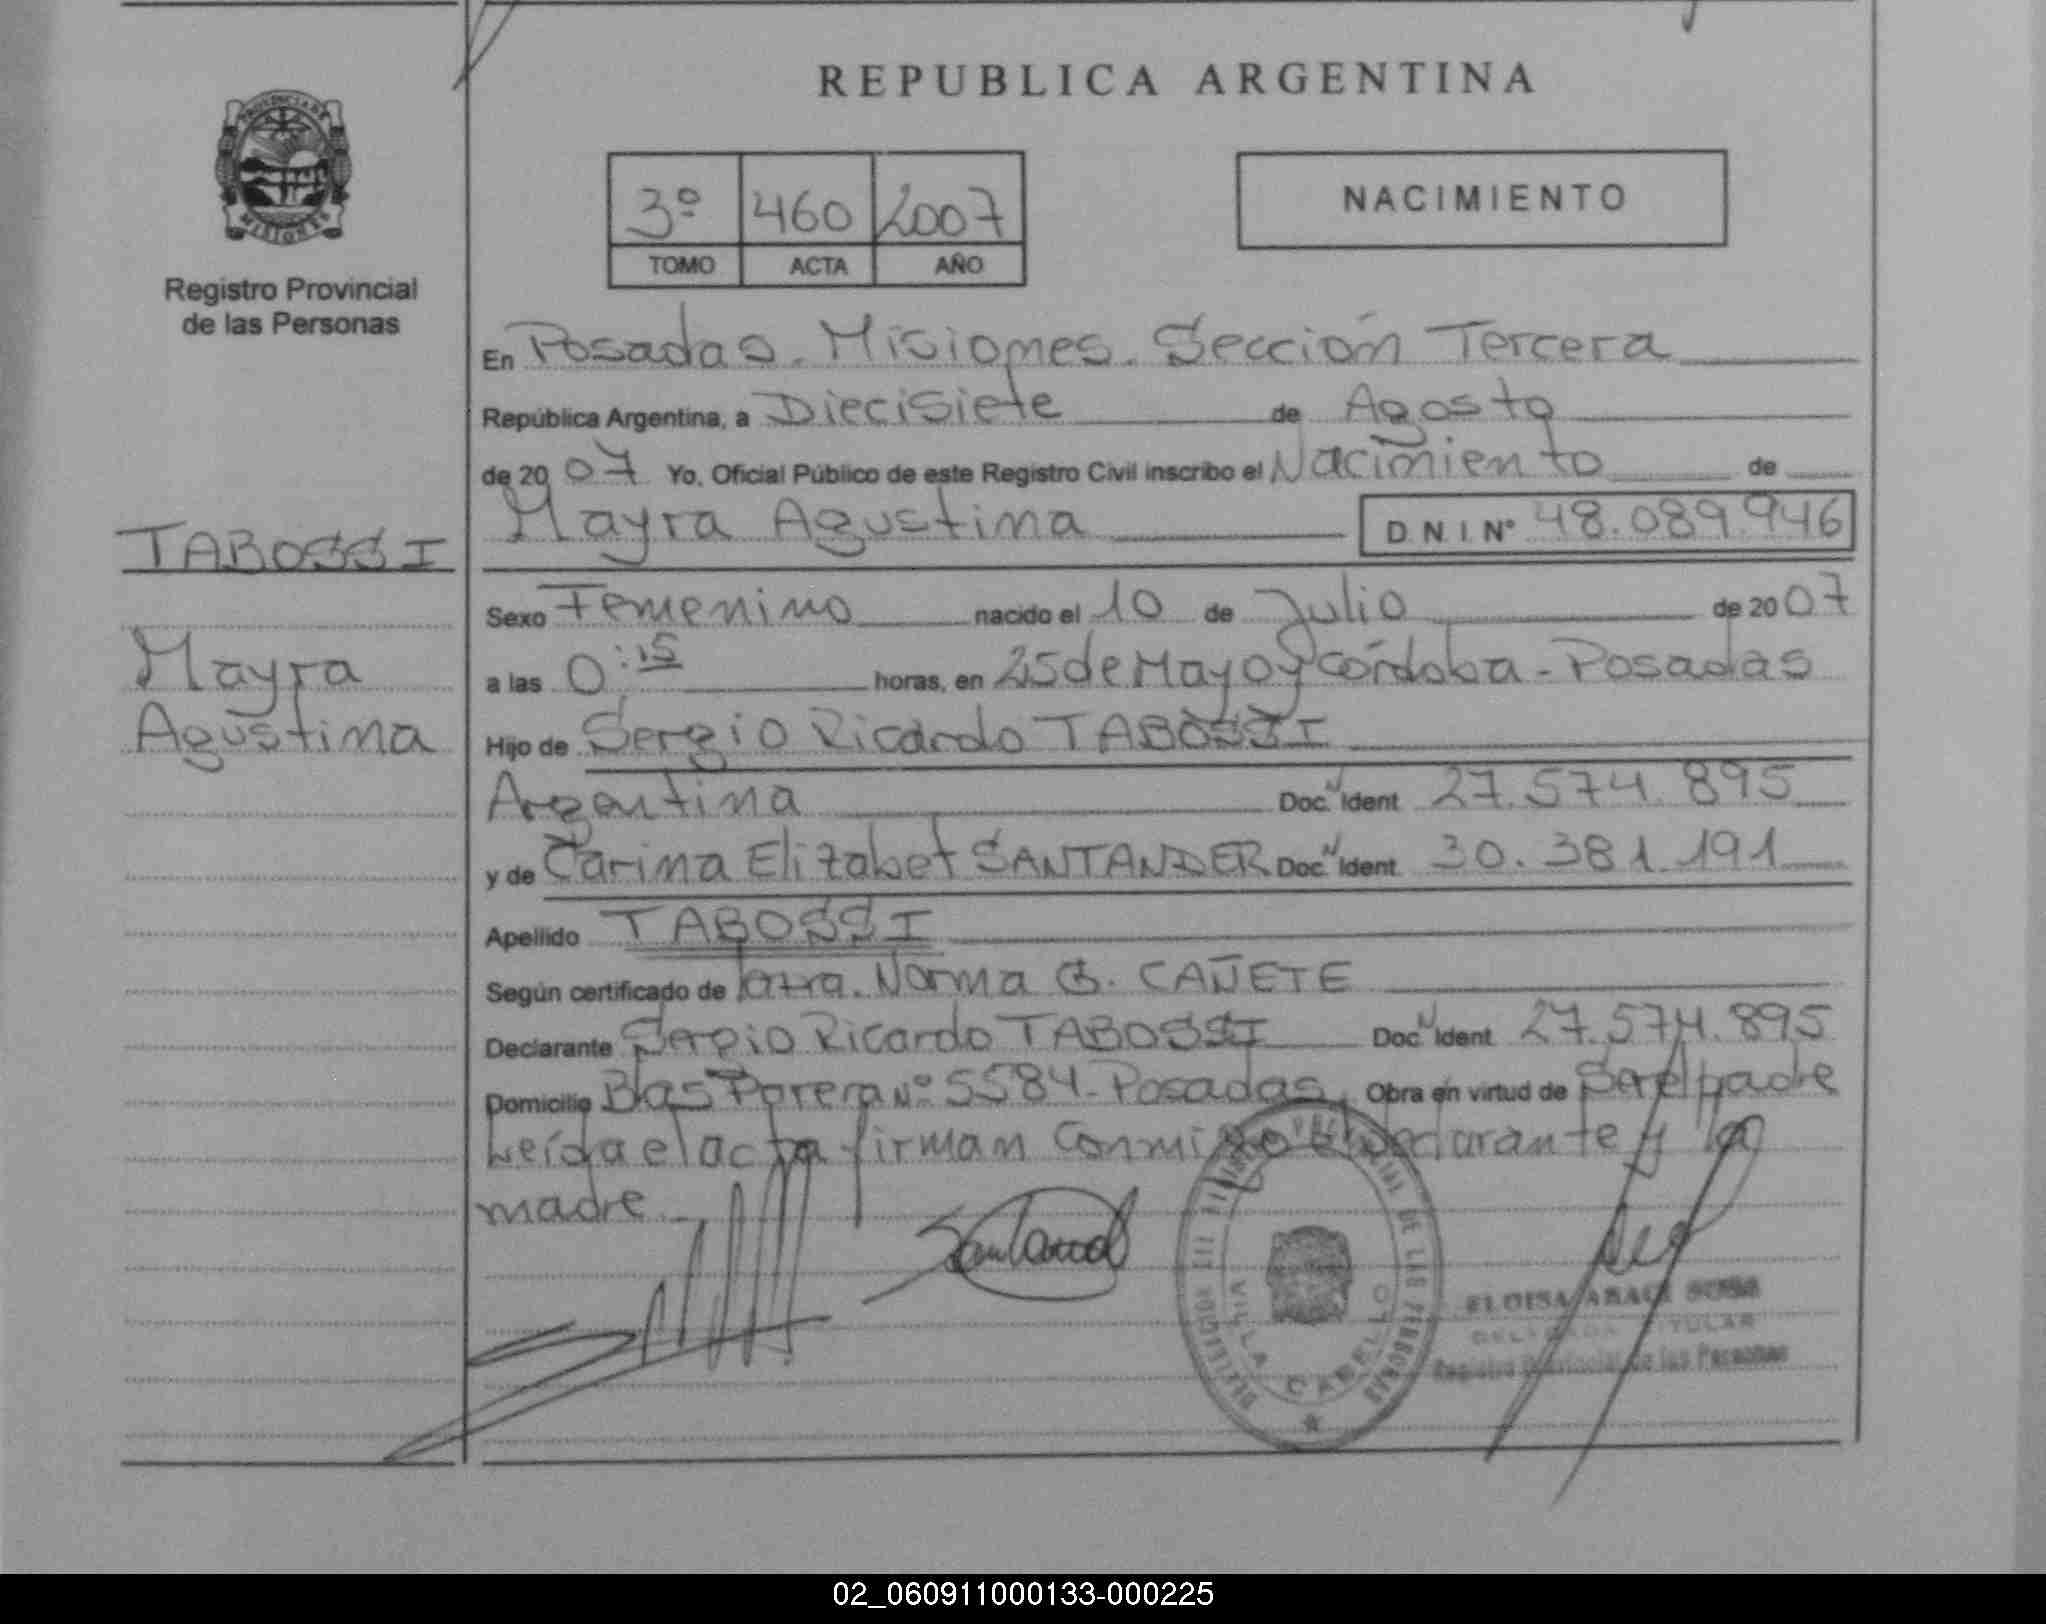 REPUBLICA ARGENTINA
PROVINCIA DE
MISIONES
Registro Provincial
de las Personas
3º 460 2007
TOMO ACTA AÑO
NACIMIENTO
En Posadas. Misiones. Sección Tercera
República Argentina, a Diecisiete de Agosto
de 2007 Yo, Oficial Público de este Registro Civil inscribo el Nacimiento de
Mayra Agustina D.N.I. Nº 48.089.946
TABOSSI
Mayra
Agustina
Sexo Femenino nacido el 10 de Julio de 2007
a las 0:15 horas, en 25 de Mayo y Córdoba - Posadas
Hijo de Sergio Ricardo TABOSSI
Argentina Doc. N Ident 27.574.895
y de Carina Elizabet SANTANDER Doc. N Ident 30.381.191
Apellido TABOSSI
Según certificado de Norma B. CAÑETE
Declarante Sergio Ricardo TABOSSI Doc N Ident 27.574.895
Domicilio Blas Parera Nº 5584 - Posadas. Obra en virtud de Ser el padre
Leída el acta firman conmigo el declarante y la
madre
VILLA CABELLO
ELOISA ARACI SOSA
DELEGADA TITULAR
Registro Provincial de las Personas
02_060911000133-000225